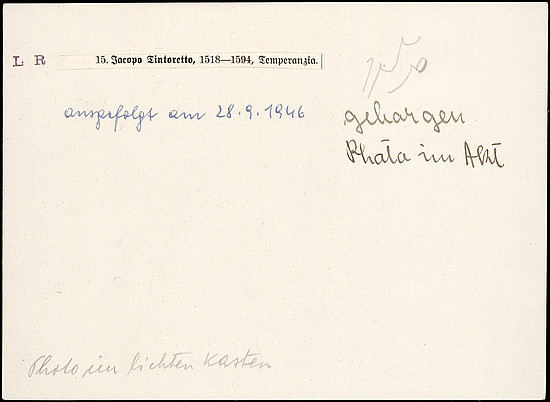 L R
15. Jacopo Tintoretto, 1518—1594, Temperanzia.
ausgefolgt am 28.9.1946
geborgen
Photo im Akt
Photo im lichten Kasten